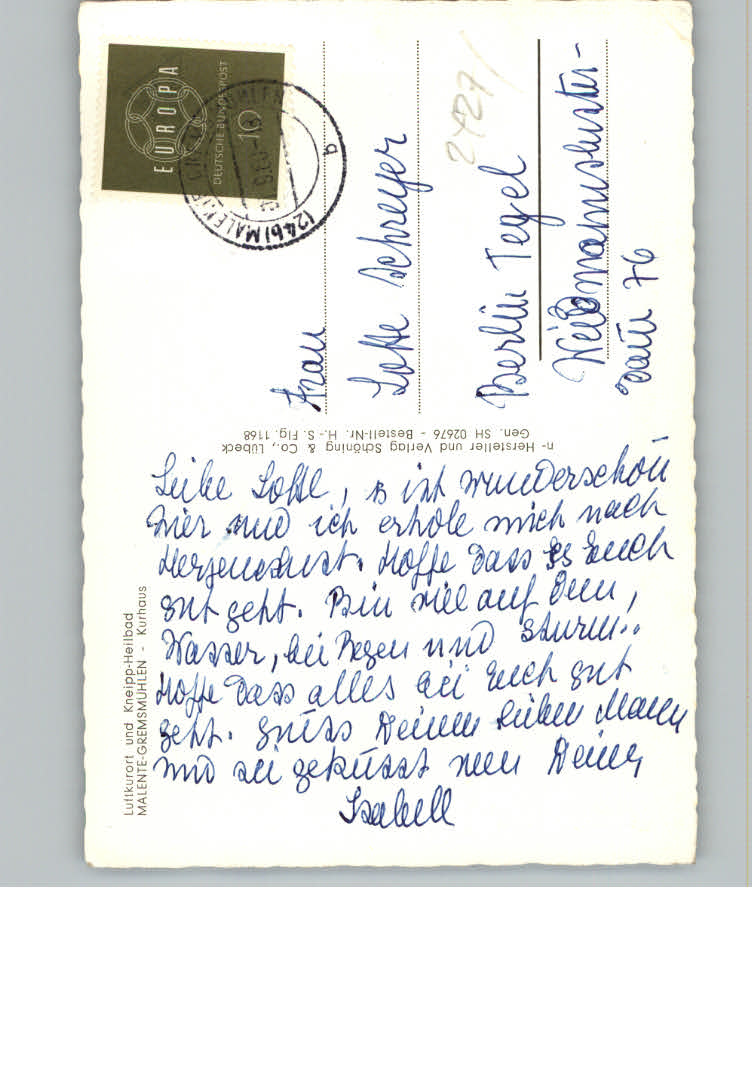 Luftkurort und Kneipp-Heilbad
MALENTE-GREMSMÜHLEN - Kurhaus
Liebe Lotte, es ist wunderschön
hier und ich erhole mich nach
Herzenslust. Hoffe dass es Euch
gut geht. Bin viel auf dem,
Wasser, bei Regen und Sturm..
Hoffe dass alles bei Euch gut
geht. Grüss Deinen lieben Mann
und sei geküsst von Deiner
Isabell
n- Hersteller und Verlag Schöning & Co., Lübeck
Gen. SH 02676 - Bestell-Nr. H.- S. Flg. 1168
EUROPA
DEUTSCHE BUNDESPOST
10
(24b) MALENTE-GREMSMÜHLEN
b
2427/
Frau
Lotte Schreyer
Berlin Tegel
Waidmannsluster-
dam 76